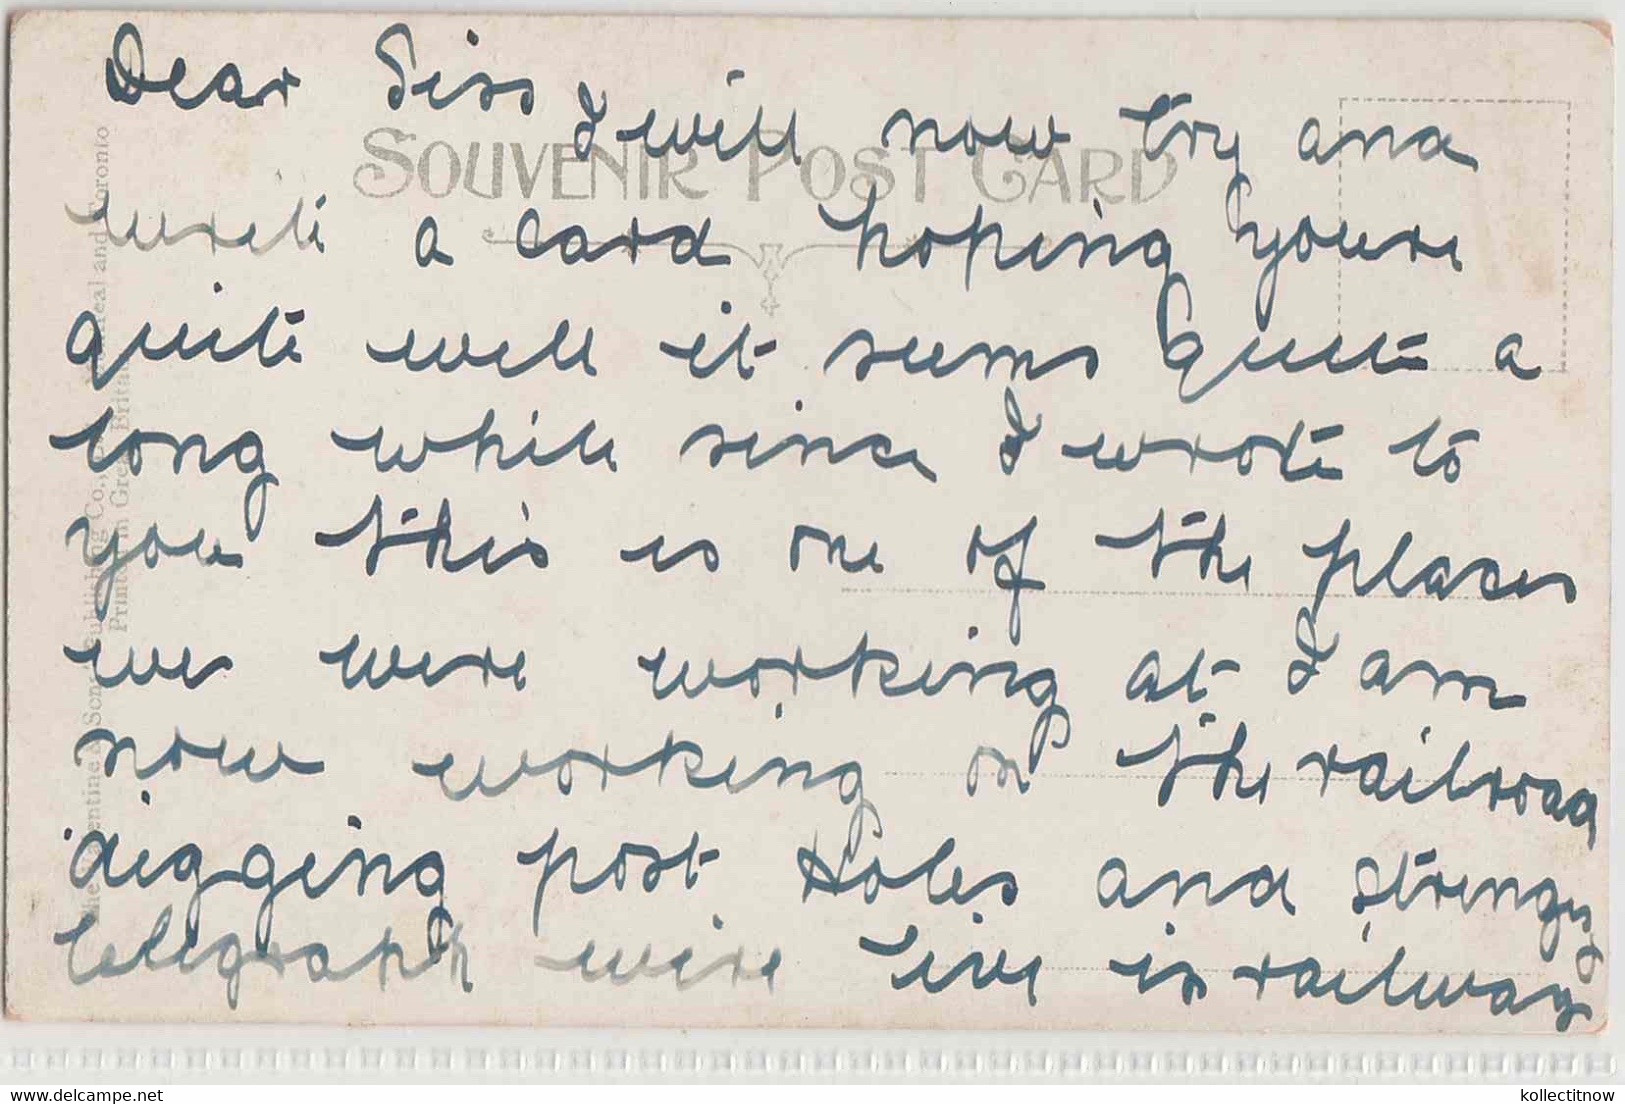 Dear Siss
I will now try and
write a card hoping youre
quite well it seems quite a
long while since I wrote to
you this is one of the places
we were working at I am
now working on the railroad
digging post Holes and stringing
telegraph wire live in railway
SOUVENIR POST CARD
The Valentine & Sons Publishing Co., Montreal and Toronto
Printed in Great Britain
kollectitnow